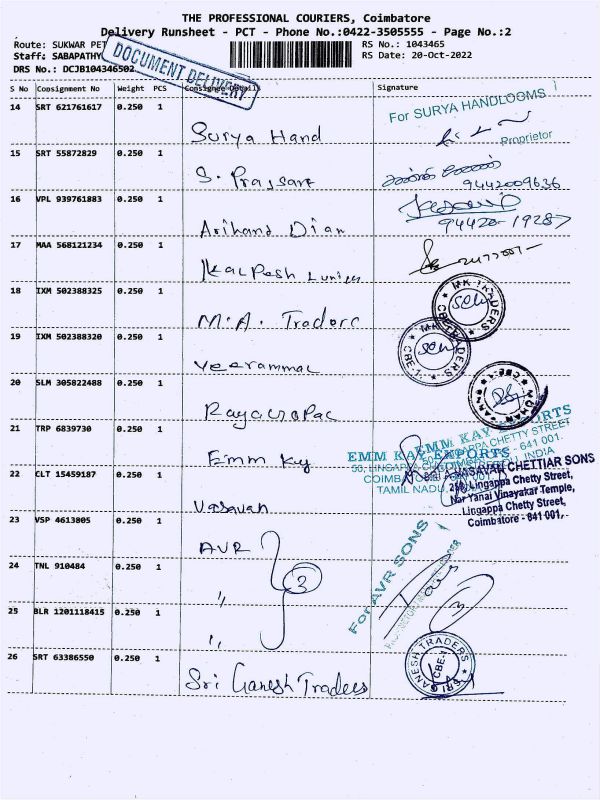 THE PROFESSIONAL COURIERS, Coimbatore
Delivery Runsheet - PCT - Phone No.:0422-3505555 - Page No.:2
Route: SUKWAR PET
RS No.: 1043465
Staff: SABAPATHY
RS Date: 20-Oct-2022
DRS No.: DCJB104346502
DOCUMENT DELIVERY
S No Consignment No Weight PCS Consignee Details Signature
14 SRT 621761617 0.250 1 Surya Hand
For SURYA HANDLOOMS
Proprietor
15 SRT 55872829 0.250 1 S. Prassana
9442009636
16 VPL 939761883 0.250 1 Arihand Dian
94420-19287
17 MAA 568121234 0.250 1 Kalpesh
18 IXM 502388325 0.250 1 M.A. Traders
MK TRADERS
19 IXM 502388320 0.250 1 Veerammal
MK TRADERS
CBE-1
20 SLM 305822488 0.250 1
CBE-1
21 TRP 6839730 0.250 1 Emm Kay
EMM KAY EXPORTS
EMM KAY EXPORTS
50, LINGAPPA CHETTY STREET
COIMBATORE - 641 001.
TAMIL NADU, INDIA
22 CLT 15459187 0.250 1 Vasavan
VASAVAN CHETTIAR SONS
Lingappa Chetty Street,
Nar Yanai Vinayakar Temple,
Lingappa Chetty Street,
Coimbatore - 641 001.
23 VSP 4613805 0.250 1 AVR
24 TNL 910484 0.250 1 "
3
For AVR SONS
25 BLR 1201118415 0.250 1 "
3
26 SRT 63386550 0.250 1 Sri Ganesh Traders
SRI GANESH TRADERS
CBE-1